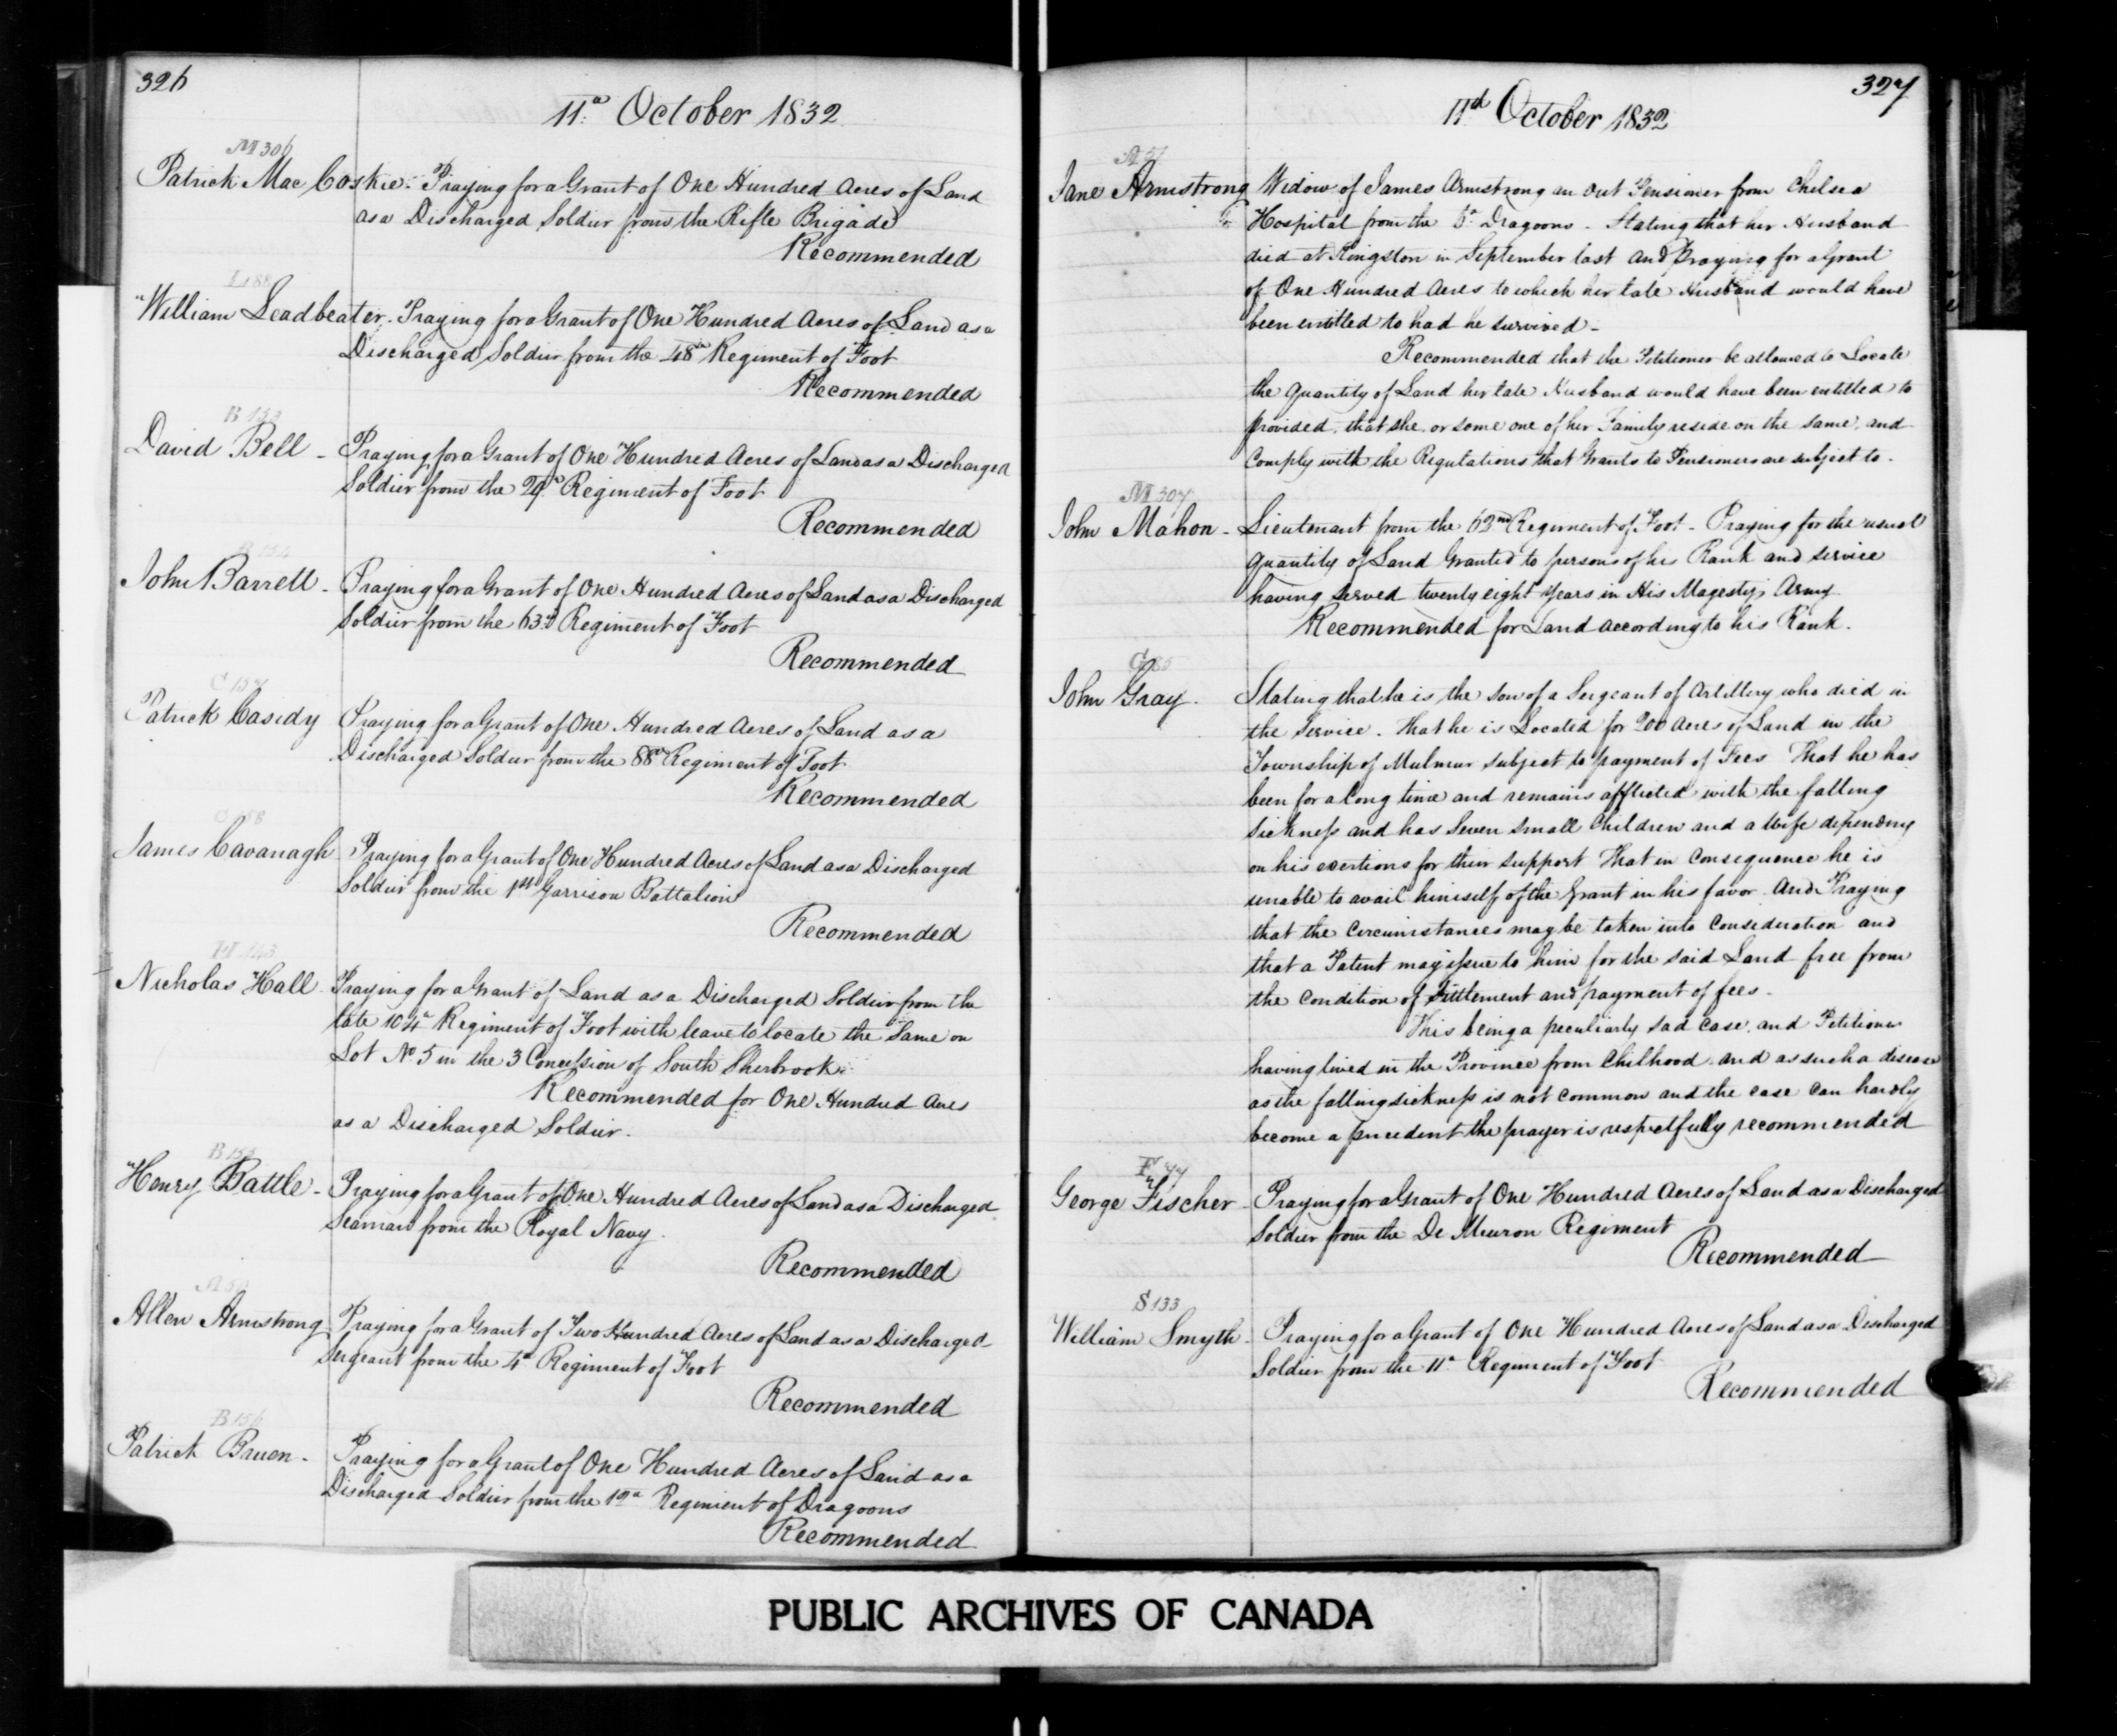 326
11th October 1832
M 306
Patrick Mac Coskie. Praying for a Grant of One Hundred Acres of Land
as a Discharged Soldier from the Rifle Brigade
Recommended
L 88
William Leadbeater. Praying for a Grant of One Hundred Acres of Land as a
Discharged Soldier from the 48th Regiment of Foot
Recommended
B 153
David Bell - Praying for a Grant of One Hundred Acres of Land as a Discharged
Soldier from the 29th Regiment of Foot
Recommended
B 154
John Barrett - Praying for a Grant of One Hundred Acres of Land as a Discharged
Soldier from the 63d Regiment of Foot
Recommended
C 157
Patrick Casidy Praying for a Grant of One Hundred Acres of Land as a
Discharged Soldier from the 88th Regiment of Foot
Recommended
C 158
James Cavanagh Praying for a Grant of One Hundred Acres of Land as a Discharged
Soldier from the 1st Garrison Battalion
Recommended
H 143
Nicholas Hall Praying for a Grant of Land as a Discharged Soldier from the
late 104th Regiment of Foot with leave to locate the Same on
Lot No 5 in the 3 Concession of South Sherbrook
Recommended for One Hundred Acres
as a Discharged Soldier.
B 155
Henry Battle - Praying for a Grant of One Hundred Acres of Land as a Discharged
Seaman from the Royal Navy.
Recommended
Allen Armstrong Praying for a Grant of Two Hundred Acres of Land as a Discharged
Sergeant from the 4th Regiment of Foot
Recommended
B 156
Patrick Bruen - Praying for a Grant of One Hundred Acres of Land as a
Discharged Soldier from the 19th Regiment of Dragoons
Recommended
327
11th October 1832
A 51
Jane Armstrong Widow of James Armstrong an out Pensioner from Chelsea
Hospital from the Dragoons - Stating that her Husband
died at Kingston in September last and Praying for a Grant
of One Hundred Acres to which her late Husband would have
been entitled to had he survived -
Recommended that the Petitioner be allowed to Locate
the Quantity of Land her late Husband would have been entitled to
provided, that she or some one of her Family reside on the same, and
Comply with the Regulations that Grants to Pensioners are subject to.
M 307
John Mahon - Lieutenant from the 62nd Regiment of Foot - Praying for the usual
quantity of Land Granted to persons of his Rank and service
having served twenty eight Years in His Magestys Army
Recommended for Land according to his Rank.
John Gray. Stating that he is the son of a Sergeant of Artillery who died in
the Service. That he is Located for 200 Acres of Land in the
Township of Mulmur subject to payment of Fees That he has
been for a long time and remains afflicted with the falling
sickness and has Seven small Children and a Wife depending
on his exertions for their support That in Consequence he is
unable to avail himself of the Grant in his favor. And Praying
that the Circumstances may be taken into Consideration and
that a Patent may issue to him for the said Land free from
the condition of Settlement and payment of fees -
This being a peculiarly sad case, and Petitioner
having lived in the Province from Chilhood and as such a disease
as the falling sickness is not common and the case can hardly
become a precedent the prayer is respectfully recommended
F 77
George Fischer - Praying for a Grant of One Hundred Acres of Land as a Discharged
Soldier from the De Meuron Regiment
Recommended
S 133
William Smyth - Praying for a Grant of One Hundred Acres of Land as a Discharged
Soldier from the 11th Regiment of Foot
Recommended
PUBLIC ARCHIVES OF CANADA